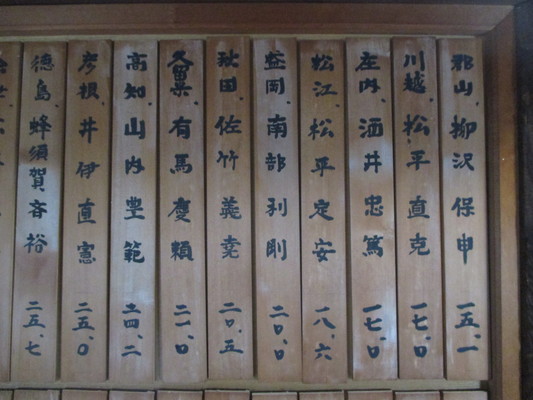 郡山、柳沢保申 一五、一
川越、松平直克 一七、〇
庄内、酒井忠篤 一七、〇
松江、松平定安 一八、六
盛岡、南部利剛 二〇、〇
秋田、佐竹義堯 二〇、五
久留米、有馬慶頼 二一、〇
高知、山内豊範 二四、二
彦根、井伊直憲 二五、〇
徳島、蜂須賀斉裕 二五、七